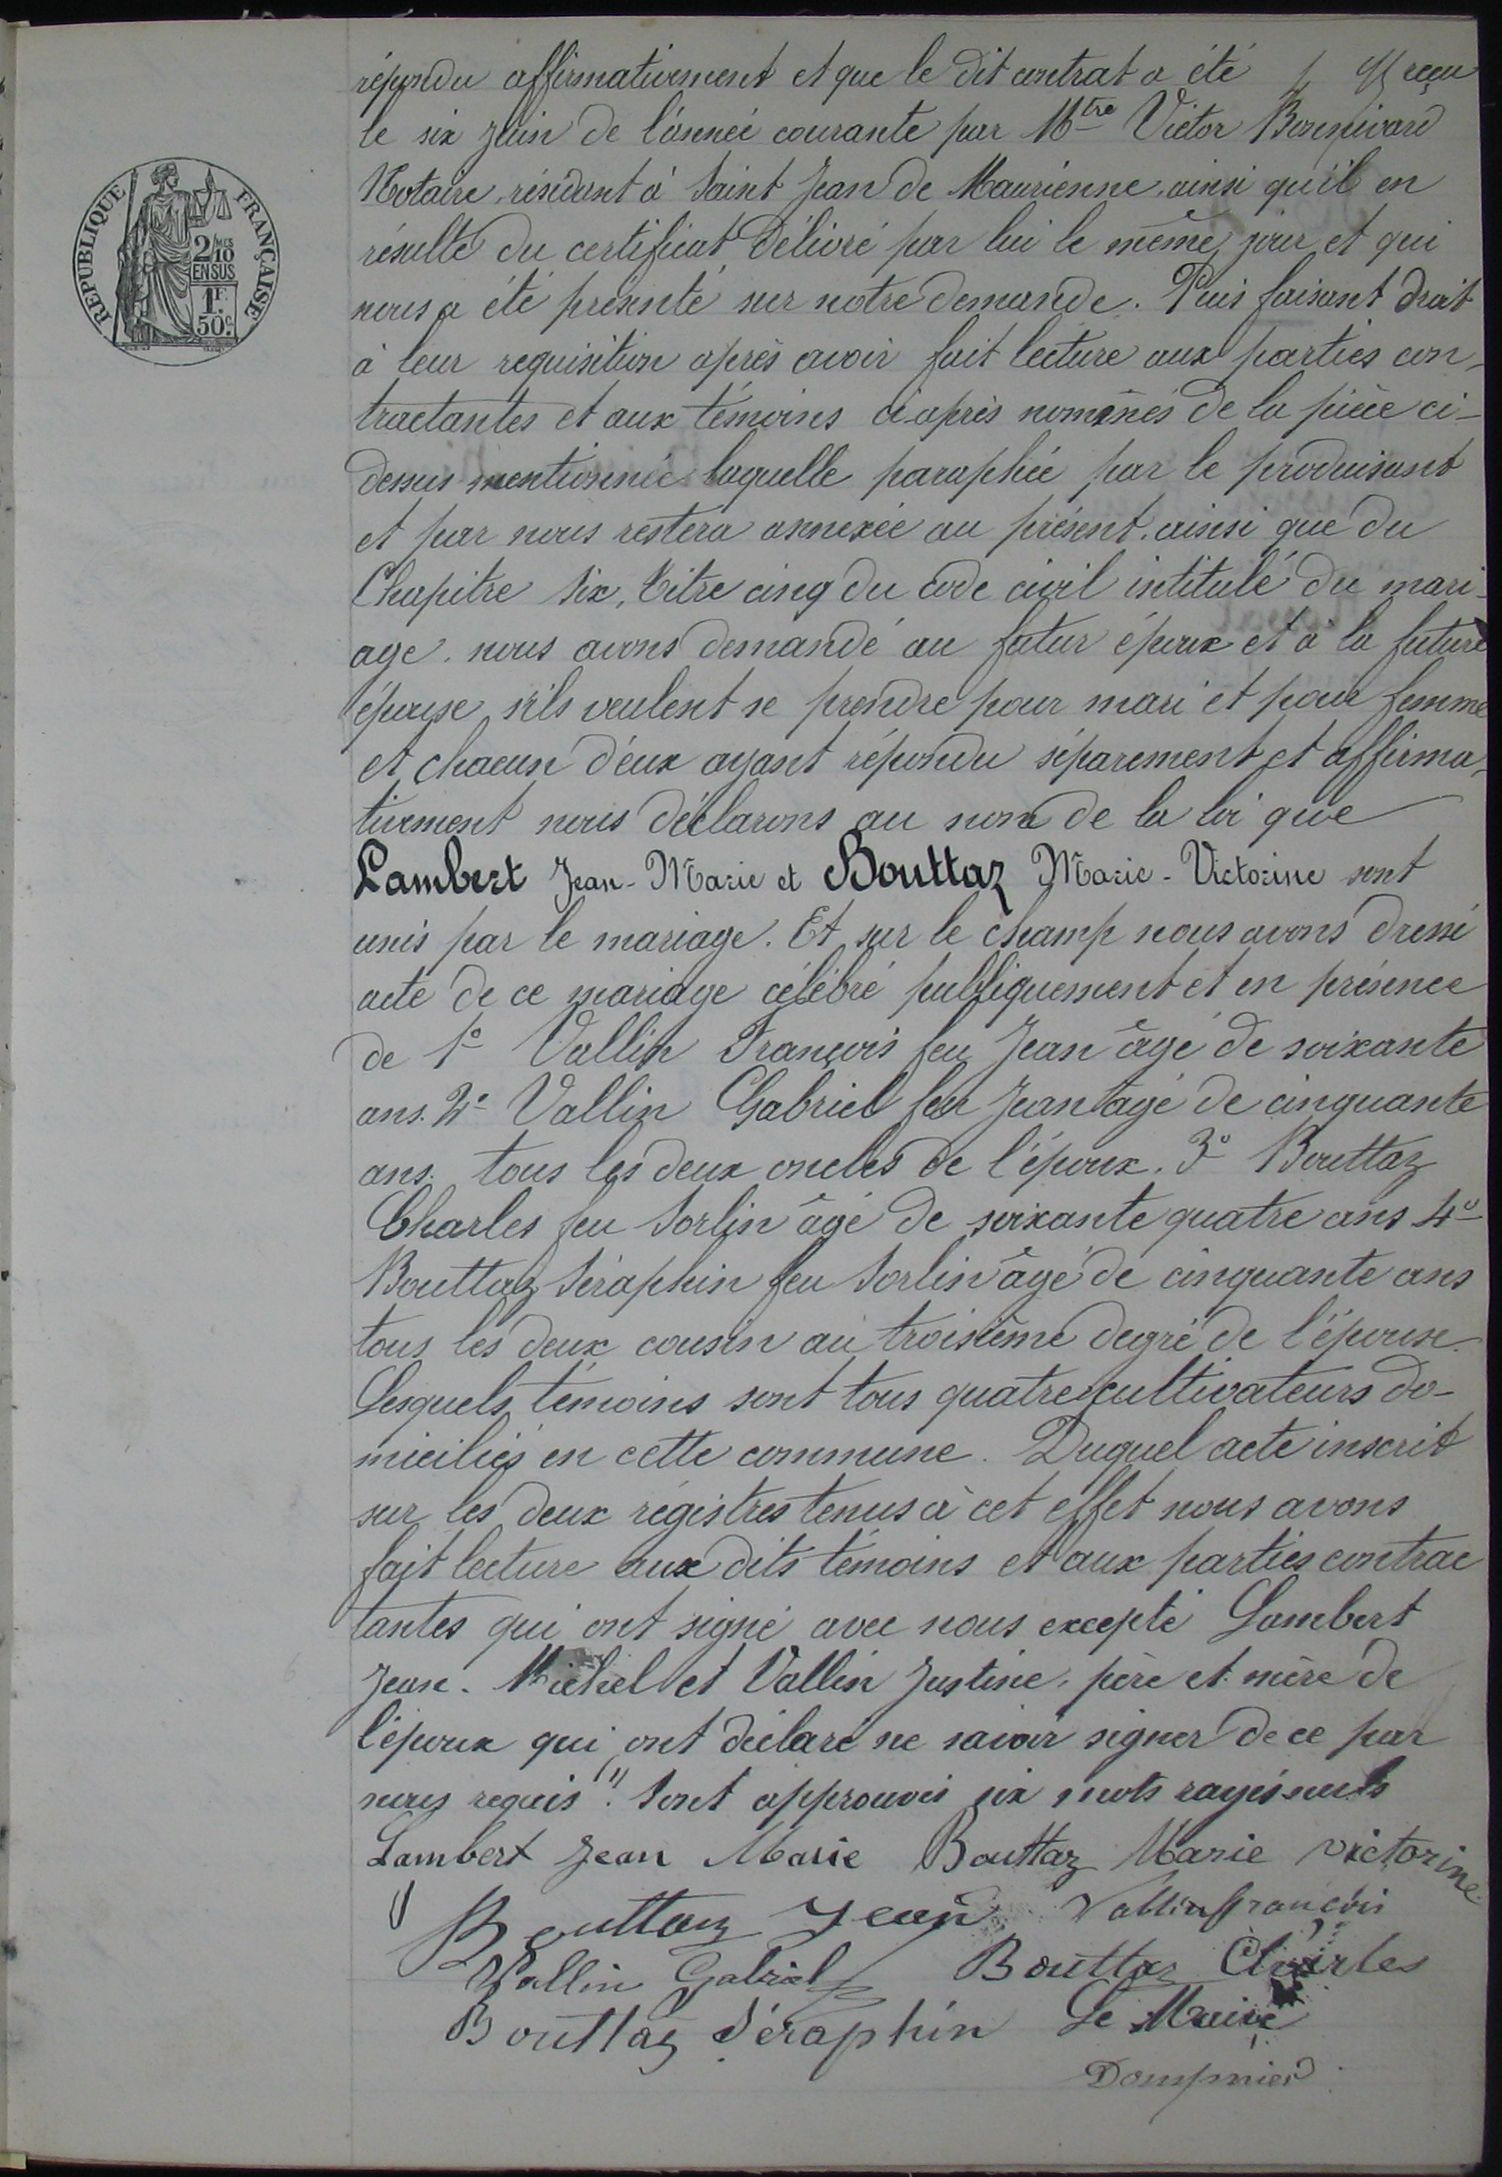 RÉPUBLIQUE FRANÇAISE
2/10 MES
EN SUS
1F.
50c.
répondu affirmativement et que le dit contrat a été reçu
le six juin de l'année courante par Mtre Victor Bonnivard
Notaire, résidant à Saint Jean de Maurienne, ainsi qu'il en
résulte du certificat délivré par lui le même jour et qui
nous a été présenté sur notre demande. Puis faisant droit
à leur requisition après avoir fait lecture aux parties con-
tractantes et aux témoins ci-après nommés de la pièce ci-
dessus mentionnée laquelle paraphée par le produisant
et par nous restera annexée au présent, ainsi que du
Chapitre Six, Titre cinq du code civil intitulé du mari-
age. nous avons demandé au futur époux et à la future
épouse s'ils veulent se prendre pour mari et pour femme
et chacun d'eux ayant répondu séparement et affirma-
tivement nous déclarons au nom de la loi que
Lambert Jean-Marie et Bouttaz Marie-Victorine sont
unis par le mariage. Et sur le champ nous avons dressé
acte de ce mariage célébré publiquement et en présence
de 1° Vallin François feu Jean âgé de soixante
ans. 2° Vallin Gabriel feu Jean âgé de cinquante
ans. tous les deux oncles de l'époux. 3° Bouttaz
Charles feu Sorlin âgé de soixante quatre ans 4°
Bouttaz Séraphin feu Sorlin âgé de cinquante ans
tous les deux cousin au troisième degré de l'épouse.
Lesquels témoins sont tous quatre cultivateurs do-
miciliés en cette commune. Duquel acte inscrit
sur les deux régistres tenus à cet effet nous avons
fait lecture aux dits témoins et aux parties contrac
tantes qui ont signé avec nous excepté Lambert
Jean-Michel et Vallin Justine, père et mère de
l'époux qui ont déclaré ne savoir signer de ce par
nous requis". Sont approuvés six mots rayés nuls
Lambert Jean Marie Bouttaz Marie victorine
Bouttaz Jean Vallin françois
Vallin Gabriel Bouttaz Charles
Bouttaz Séraphin Le Maire
Dompnier